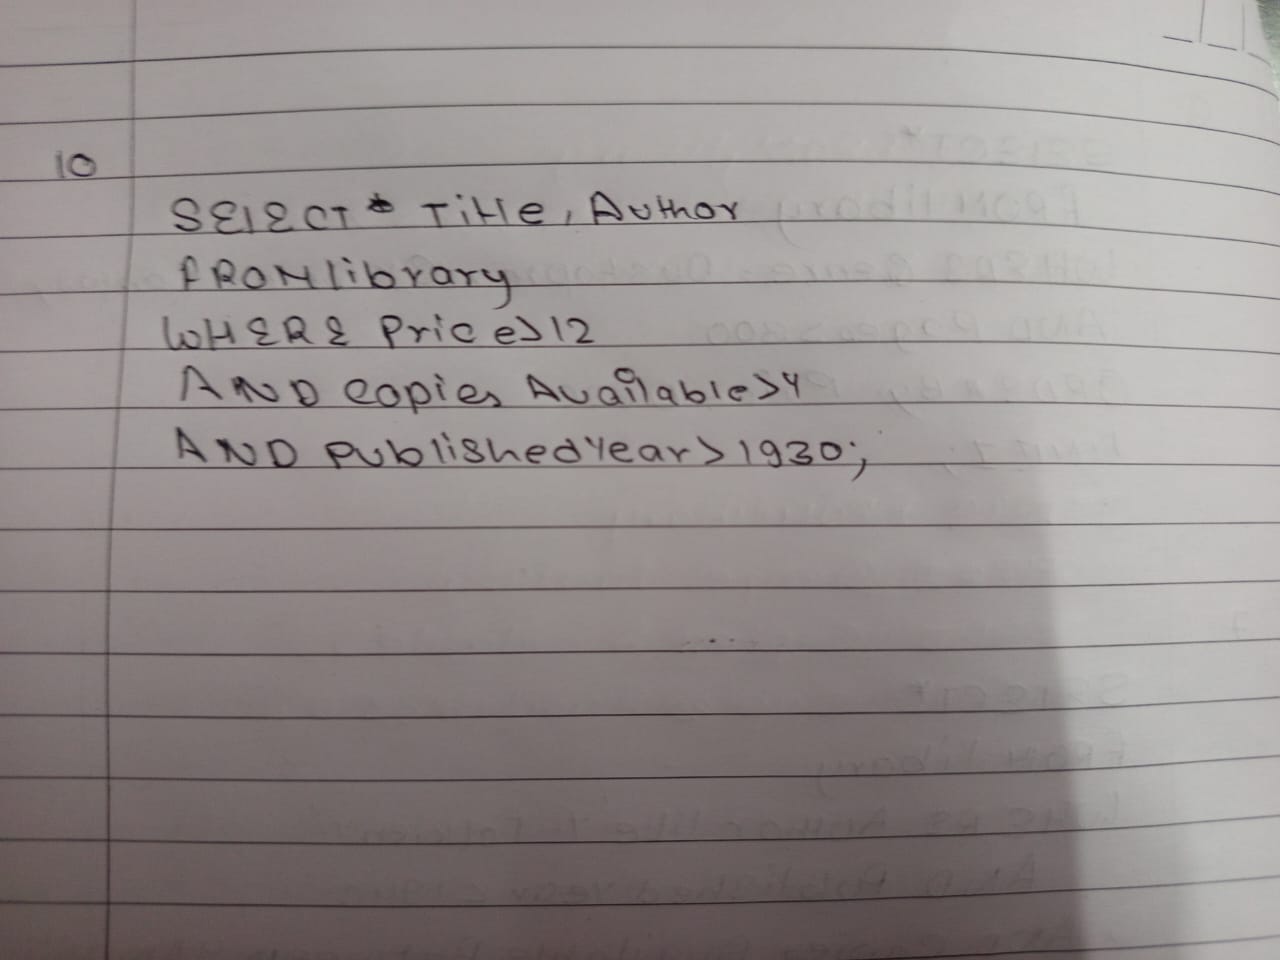 10
SELECT * Title, Author
FROM library
WHERE Price>12
AND Copies Available>4
AND PublishedYear>1930;